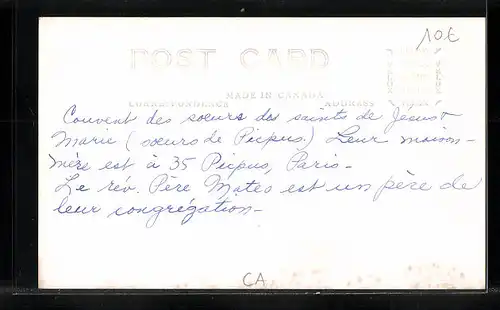 10€
POST CARD
MADE IN CANADA
CORRESPONDENCE ADDRESS
Couvent des soeurs des saints de Jesus &
Marie (soeurs de Picpus.) Leur maison-
mère est à 35 Picpus, Paris-
Le rév. Père Mateo est un père de
leur congrégation-
CA